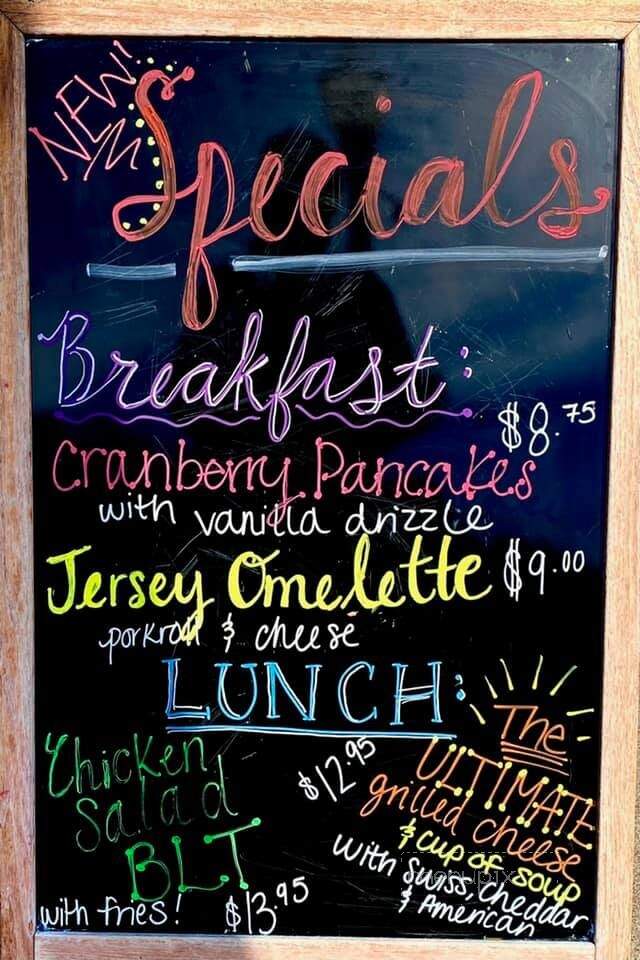 NEW!
Specials
Breakfast:
$8.75
Cranberry Pancakes
with vanilla drizzle
Jersey Omelette $9.00
porkroll & cheese
LUNCH:
Chicken
Salad
BLT
with fries! $13.95
$12.95
The
ULTIMATE
grilled cheese
& cup of soup
with Swiss, Cheddar
& American
menupix